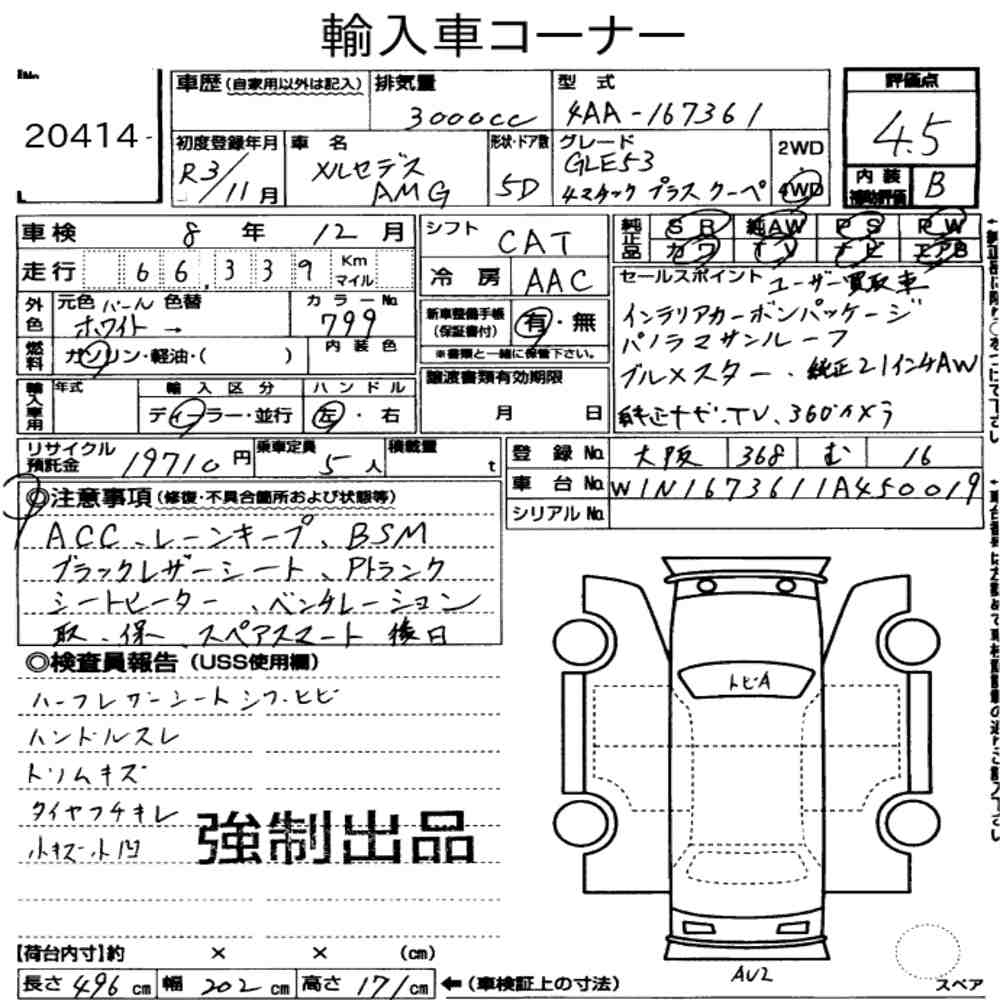 輸入車コーナー
No.
20414-
車歴(自家用以外は記入)
排気量
3000cc
型 式
4AA-167361
評価点
4.5
初度登録年月
R3/11月
車 名
メルセデス
AMG
形状・ドア数
5D
グレード
GLE53
4マチック プラス クーペ
2WD
4WD
内装
補助評価
B
車検 8 年 12 月
走行 66,339 Km
マイル
シフト
CAT
冷房 AAC
純正品
SR 純AW PS PW
カワ TV ナビ エアB
外色
元色 パール 色替
ホワイト →
カラーNo.
799
燃料
ガソリン・軽油・( )
内装色
新車整備手帳
(保証書付)
有・無
※書類と一緒に保管下さい。
セールスポイント ユーザー買取車
インテリアカーボンパッケージ
パノラマサンルーフ
ブルメスター、純正21インチAW
純正ナビ.TV、360カメラ
輸入車用
年式
輸入区分
ディーラー・並行
ハンドル
左・右
譲渡書類有効期限
月 日
リサイクル
預託金
19710円
乗車定員
5人
積載量
t
登録No. 大阪 368 む 16
車台No. W1N1673611A450019
シリアルNo.
◎注意事項(修復・不具合箇所および状態等)
ACC、レーンキープ、BSM
ブラックレザーシート、Pトランク
シートヒーター、ベンチレーション
取、保、スペアスマート 後日
◎検査員報告(USS使用欄)
ハーフレザーシートシワ.ヒビ
ハンドルスレ
トリムキズ
タイヤフチキレ
小キズ小凹
強制出品
トビA
AU2
【荷台内寸】約 × × (cm)
長さ 496 cm 幅 202 cm 高さ 171 cm
←(車検証上の寸法)
スペア